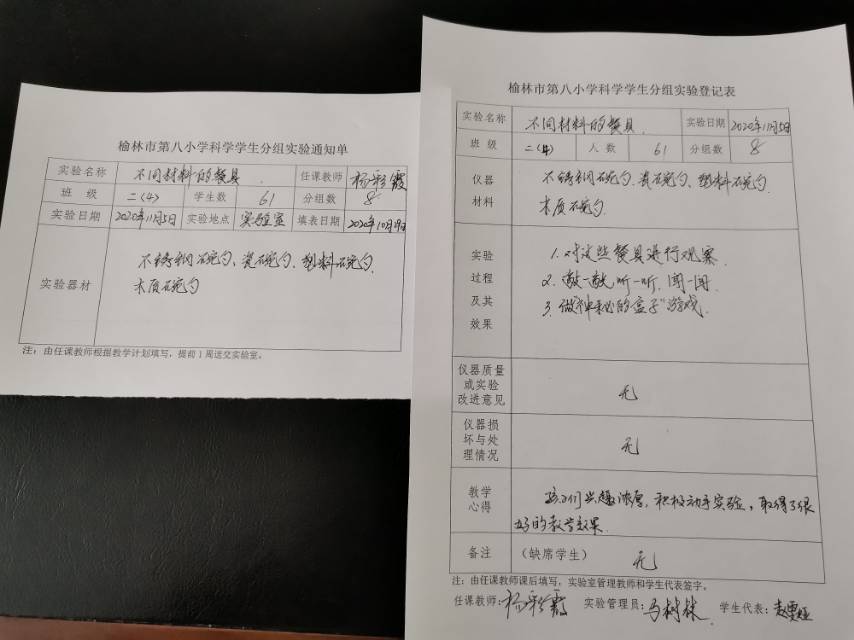 榆林市第八小学科学学生分组实验通知单
实验名称 不同材料的餐具. 任课教师 杨彩霞
班 级 二(4) 学生数 61 分组数 8
实验日期 2020年11月5日 实验地点 实验室 填表日期 2020年10月9日
实验器材 不锈钢碗勺、瓷碗勺、塑料碗勺.
木质碗勺
注：由任课教师根据教学计划填写，提前1周送交实验室。
榆林市第八小学科学学生分组实验登记表
实验名称 不同材料的餐具. 实验日期 2020年11月5日
班 级 二(4) 人 数 61 分组数 8
仪器
材料
不锈钢碗勺、瓷碗勺、塑料碗勺.
木质碗勺.
实验
过程
及其
效果
1. 对这些餐具进行观察.
2. 敲一敲,听一听,闻一闻.
3. 做"神秘的盒子"游戏.
仪器质量
或实验
改进意见
无
仪器损
坏与处
理情况
无
教学
心得
孩子们兴趣浓厚,积极动手实验,取得了很
好的教学效果.
备注 （缺席学生） 无
注：由任课教师课后填写，实验室管理教师和学生代表签字。
任课教师: 杨彩霞 实验管理员: 马树林 学生代表: